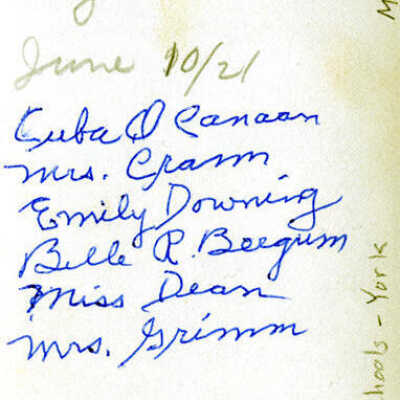 June 10/21
Cuba O Canaan
Mrs. Cramm
Emily Downing
Belle R. Beegum
Miss Dean
Mrs. Grimm
hools - York